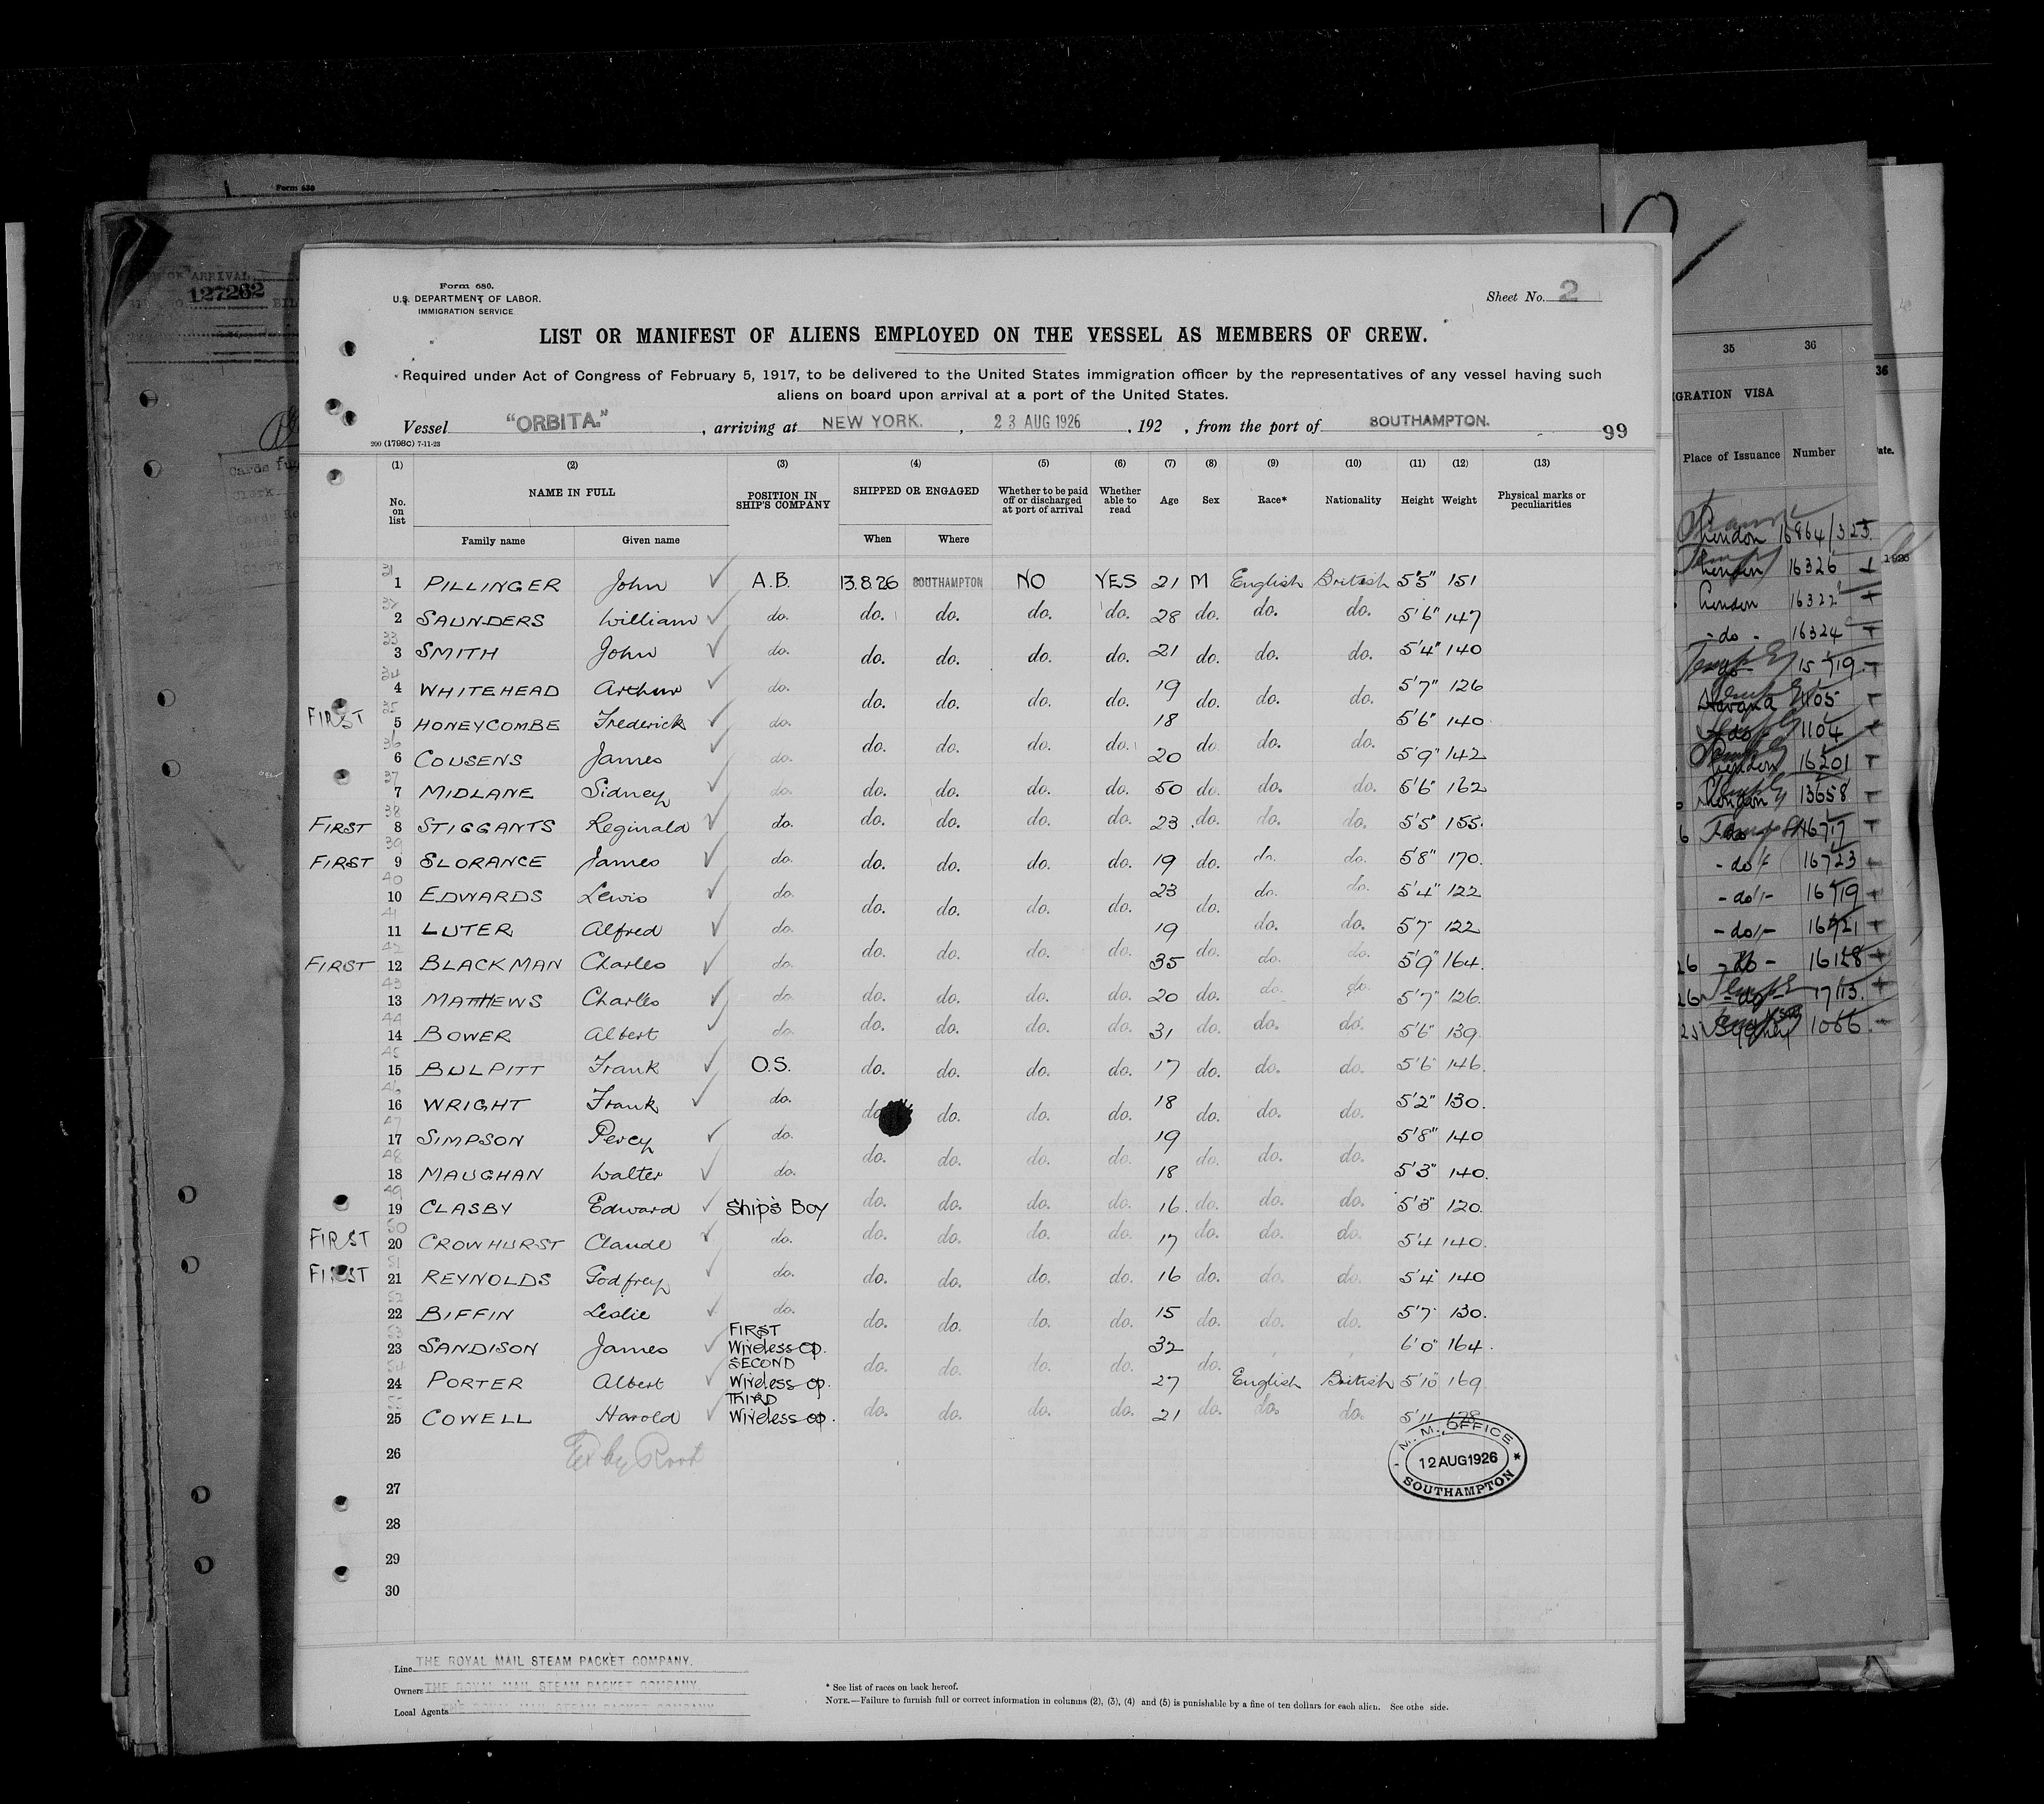 Form 630
OF ARRIVAL
127262
Form 680.
U.S. DEPARTMENT OF LABOR.
IMMIGRATION SERVICE
Sheet No. 2
LIST OR MANIFEST OF ALIENS EMPLOYED ON THE VESSEL AS MEMBERS OF CREW.
Required under Act of Congress of February 5, 1917, to be delivered to the United States immigration officer by the representatives of any vessel having such
aliens on board upon arrival at a port of the United States.
Vessel "ORBITA." , arriving at NEW YORK. , 23 AUG 1926 , 192 , from the port of SOUTHAMPTON.
200 (1798C) 7-11-23
99
(1) (2) (3) (4) (5) (6) (7) (8) (9) (10) (11) (12) (13)
No. on list NAME IN FULL POSITION IN SHIP'S COMPANY SHIPPED OR ENGAGED Whether to be paid off or discharged at port of arrival Whether able to read Age Sex Race* Nationality Height Weight Physical marks or peculiarities
Family name Given name When Where
31 1 PILLINGER John ✓ A.B. 13.8.26 SOUTHAMPTON NO YES 21 M English British 5'5" 151
32 2 SAUNDERS William ✓ do. do. do. do. do. 28 do. do. do. 5'6" 147
33 3 SMITH John ✓ do. do. do. do. do. 21 do. do. do. 5'4" 140
34 4 WHITEHEAD Arthur ✓ do. do. do. do. do. 19 do. do. do. 5'7" 126
FIRST 35 5 HONEYCOMBE Frederick ✓ do. 18 5'6" 140
36 6 COUSENS James ✓ do. do. do. do. do. 20 do. do. do. 5'9" 142
37 7 MIDLANE Sidney ✓ do. do. do. do. do. 50 do. do. do. 5'6" 162
FIRST 38 8 STIGGANTS Reginald ✓ do. do. do. do. do. 23 do. do. do. 5'5" 155.
FIRST 39 9 SLORANCE James ✓ do. do. do. do. do. 19 do. do. do. 5'8" 170.
40 10 EDWARDS Lewis ✓ do. do. do. do. do. 23 do. do. do. 5'4" 122
41 11 LUTER Alfred ✓ do. 19 do. do. 5'7" 122
FIRST 42 12 BLACKMAN Charles ✓ do. do. do. do. do. 35 do. do. do. 5'9" 164.
43 13 MATTHEWS Charles ✓ do. do. do. do. do. 20 do. do. do. 5'7" 126.
44 14 BOWER Albert ✓ do. do. do. do. do. 31 do. do. do. 5'6" 139.
45 15 BULPITT Frank ✓ O.S. do. do. do. do. 17 do. do. do. 5'6 146.
46 16 WRIGHT Frank ✓ do. do. do. do. do. 18 do. do. do. 5'2" 130.
47 17 SIMPSON Percy ✓ do. 19 5'8" 140
48 18 MAUGHAN Walter ✓ do. do. do. do. do. 18 do. do. do. 5'3" 140.
49 19 CLASBY Edward ✓ Ship's Boy do. do. do. do. 16. do. do. do. 5'3" 120.
FIRST 50 20 CROWHURST Claude ✓ do. do. do. do. do. 17 do. do. do. 5'4 140.
FIRST 51 21 REYNOLDS Godfrey ✓ do. do. do. do. do. 16 do. do. do. 5'4" 140
52 22 BIFFIN Leslie ✓ do. do. do. do. do. 15 do. do. do. 5'7" 130.
53 23 SANDISON James ✓ FIRST Wireless op. 32 6'0" 164.
54 24 PORTER Albert ✓ SECOND Wireless op. do. do. do. do. 27 do. English British 5'10" 169
55 25 COWELL Harold ✓ THIRD Wireless op. do. do. do. do. 21 do. do. do. 5'11 178
26
27
28
29
30
M. M. OFFICE
12 AUG 1926
SOUTHAMPTON
Line THE ROYAL MAIL STEAM PACKET COMPANY.
Owners THE ROYAL MAIL STEAM PACKET COMPANY
Local Agents THE ROYAL MAIL STEAM PACKET COMPANY
* See list of races on back hereof.
NOTE.—Failure to furnish full or correct information in columns (2), (3), (4) and (5) is punishable by a fine of ten dollars for each alien. See othe side.
35 36
36
IGRATION VISA
Place of Issuance Number
London 16864/323
London 16326
London 16322
- do - 16324
1105
1104
London 16201
London 13658
- do - 16723
- do - 16719
- do - 16721
- do - 16128
- do - 17113.
Sydney 1066